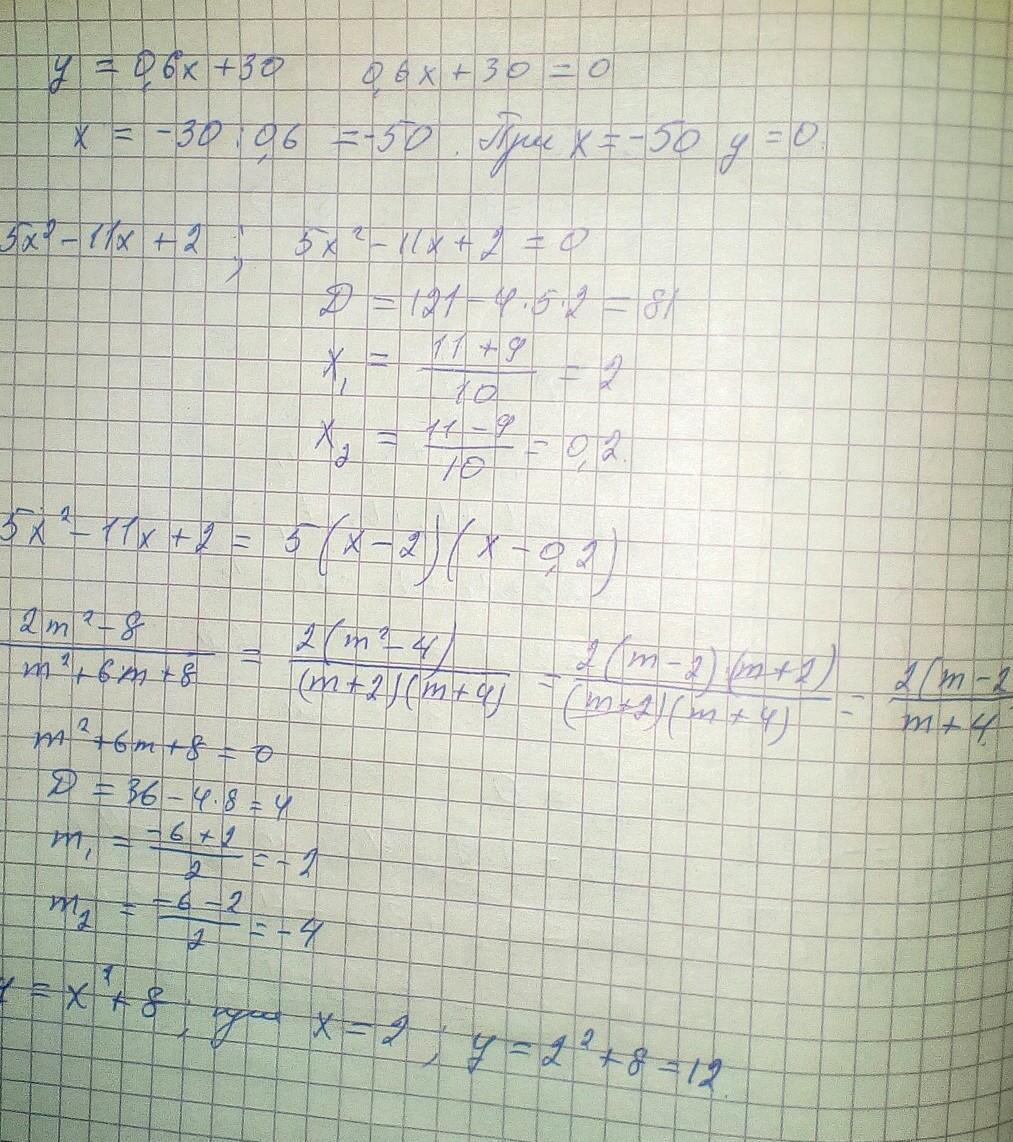 y = 0,6x + 30   0,6x + 30 = 0
x = -30 : 0,6 = -50. При x = -50 y = 0.
5x² - 11x + 2 ; 5x² - 11x + 2 = 0
D = 121 - 4·5·2 = 81
x₁ = (11 + 9)/10 = 2
x₂ = (11 - 9)/10 = 0,2.
5x² - 11x + 2 = 5(x - 2)(x - 0,2)
(2m² - 8)/(m² + 6m + 8) = 2(m² - 4)/((m+2)(m+4)) = 2(m-2)(m+2)/((m+2)(m+4)) = 2(m-2/(m+4
m² + 6m + 8 = 0
D = 36 - 4·8 = 4
m₁ = (-6 + 2)/2 = -2
m₂ = (-6 - 2)/2 = -4
= x² + 8, при x = 2 ; y = 2² + 8 = 12.